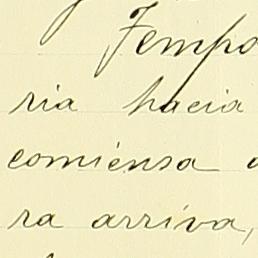 Tempo
ria hacia
comiensa
ra arriva,